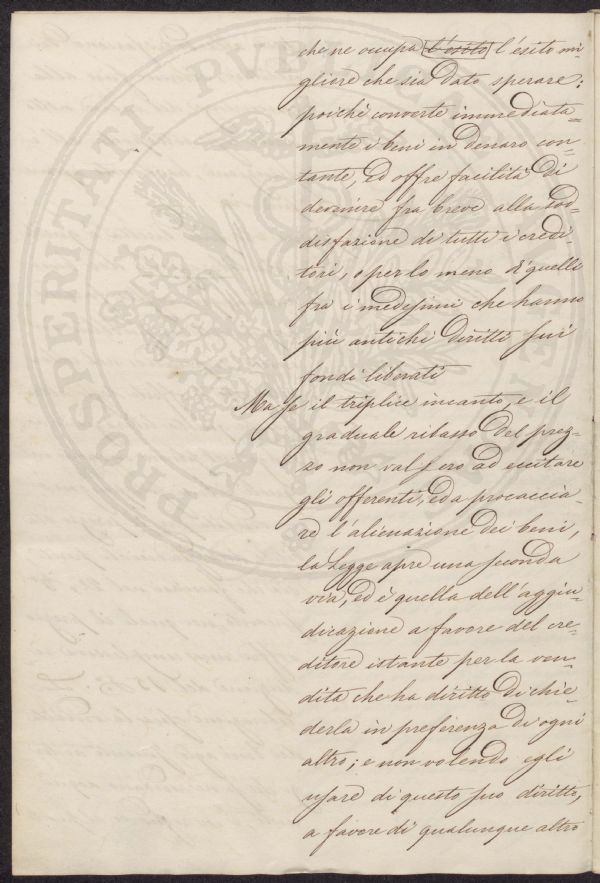 che ne occupa l'esito l'esito mi
gliore che sia dato sperare;
poichè converte immediata=
mente i beni in denaro con=
tante, ed offre facilità di
devenire fra breve alla sod=
disfazione di tutti i credi=
tori, o per lo meno di quelli
fra i medesimi che hanno
più antichi diritti sui
fondi liberati
Ma se il triplice incanto, e il
graduale ribasso del prez=
zo non valsero ad eccitare
gli offerenti, ed a procaccia=
re l'alienazione dei beni,
la Legge apre una seconda
via, ed è quella dell'aggiu=
dicazione a favore del cre=
ditore istante per la ven=
dita che ha diritto di chie=
derla in preferenza di ogni
altro; e non volendo egli
usare di questo suo diritto,
a favore di qualunque altro
PROSPERITATI PVBLICAE